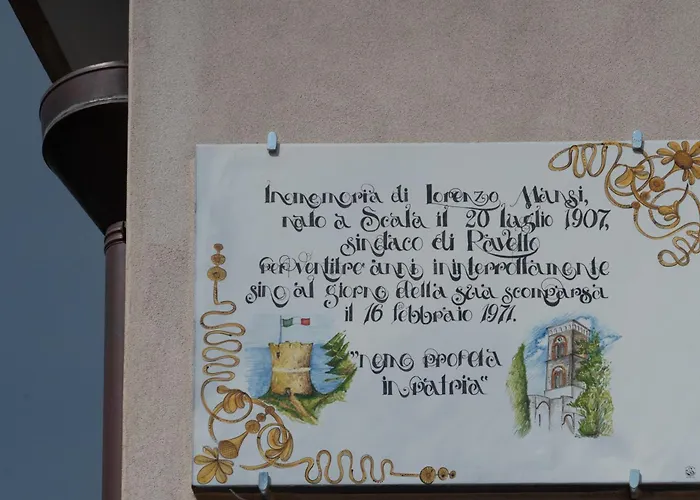 In memoria di Lorenzo Mansi,
nato a Scala il 20 luglio 1907,
sindaco di Ravello
per ventitre anni ininterrottamente
sino al giorno della sua scomparsa
il 16 febbraio 1971.
"nemo profeta
in patria"